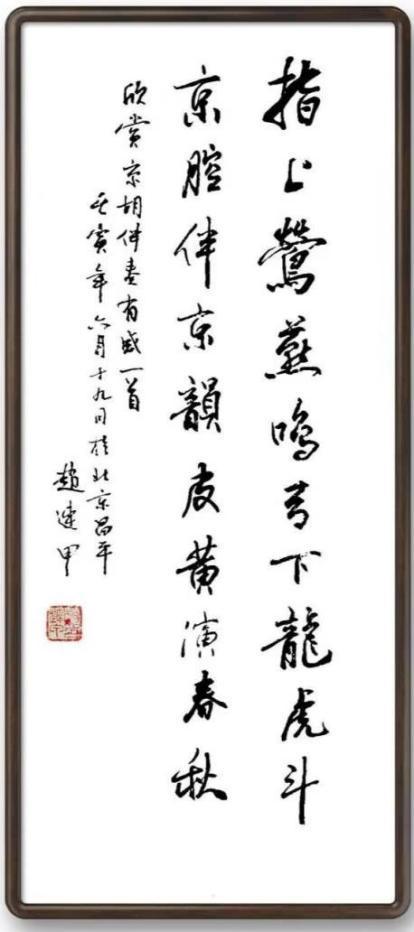 指上鶯燕鳴弓下龍虎斗
京腔伴京韻皮黄演春秋
欣賞京胡伴奏有感一首
壬寅年六月十九日於北京昌平
趙連甲